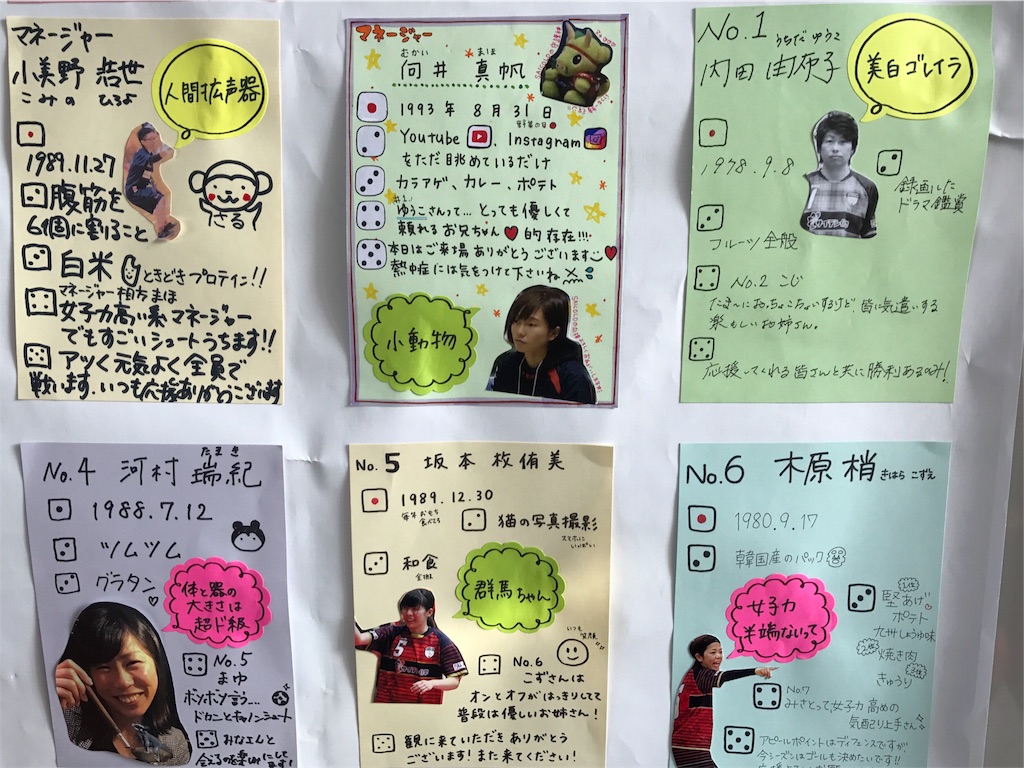 マネージャー
小美野 浩世
こみの ひろよ
人間拡声器
1989.11.27
腹筋を
6個に割ること
さる
白米 ときどき プロテイン!!
マネージャー相方まほ
女子力高い系マネージャー
でもすごいシュートうちます!!
アツく元気よく全員で
戦います.いつも応援ありがとうございます
マネージャー
むかい まほ
向井 真帆
1993年 8月31日
野菜の日
Youtube、Instagram
をただ眺めているだけ
カラアゲ、カレー、ポテト
#1
ゆうこさんって…とっても優しくて
頼れるお兄ちゃん的存在!!!
本日はご来場ありがとうございます
熱中症には気をつけて下さいね
小動物
No.1 うちだ ゆうこ
内田 由布子
美白ゴレイラ
1978.9.8
録画した
ドラマ鑑賞
フルーツ全般
No.2 こじ
たまーにおっちょこちょいするけど、皆に気遣いする
楽もしいお姉さん。
応援してくれる皆さんと共に勝利あるのみ!
No.4 河村 瑞紀
たまき
1988.7.12
ツムツム
グラタン
体と器の
大きさは
超ド級
No.5
まゆ
ボソボソ言う…
ドカンとキャノンシュート
みなさんと
No.5 坂本 牧侑美
1989.12.30
毎年おもち
食べてる
猫の写真撮影
スマホに
いっぱい
和食
全般
群馬ちゃん
いつも
笑顔
No.6
こずさんは
オンとオフがはっきりしてて
普段は優しいお姉さん!
観に来ていただき ありがとう
ございます!また来てください!
No.6 木原 梢 きはら こずえ
1980.9.17
韓国産のパック
1位
堅あげ
ポテト
九州しょうゆ味
2位
焼き肉
3位
きゅうり
女子力
半端ないって
No.7
みさとって、女子力高めの
気配り上手さん
アピールポイントはディフェンスですが
今シーズンはゴールも決めたいです!!